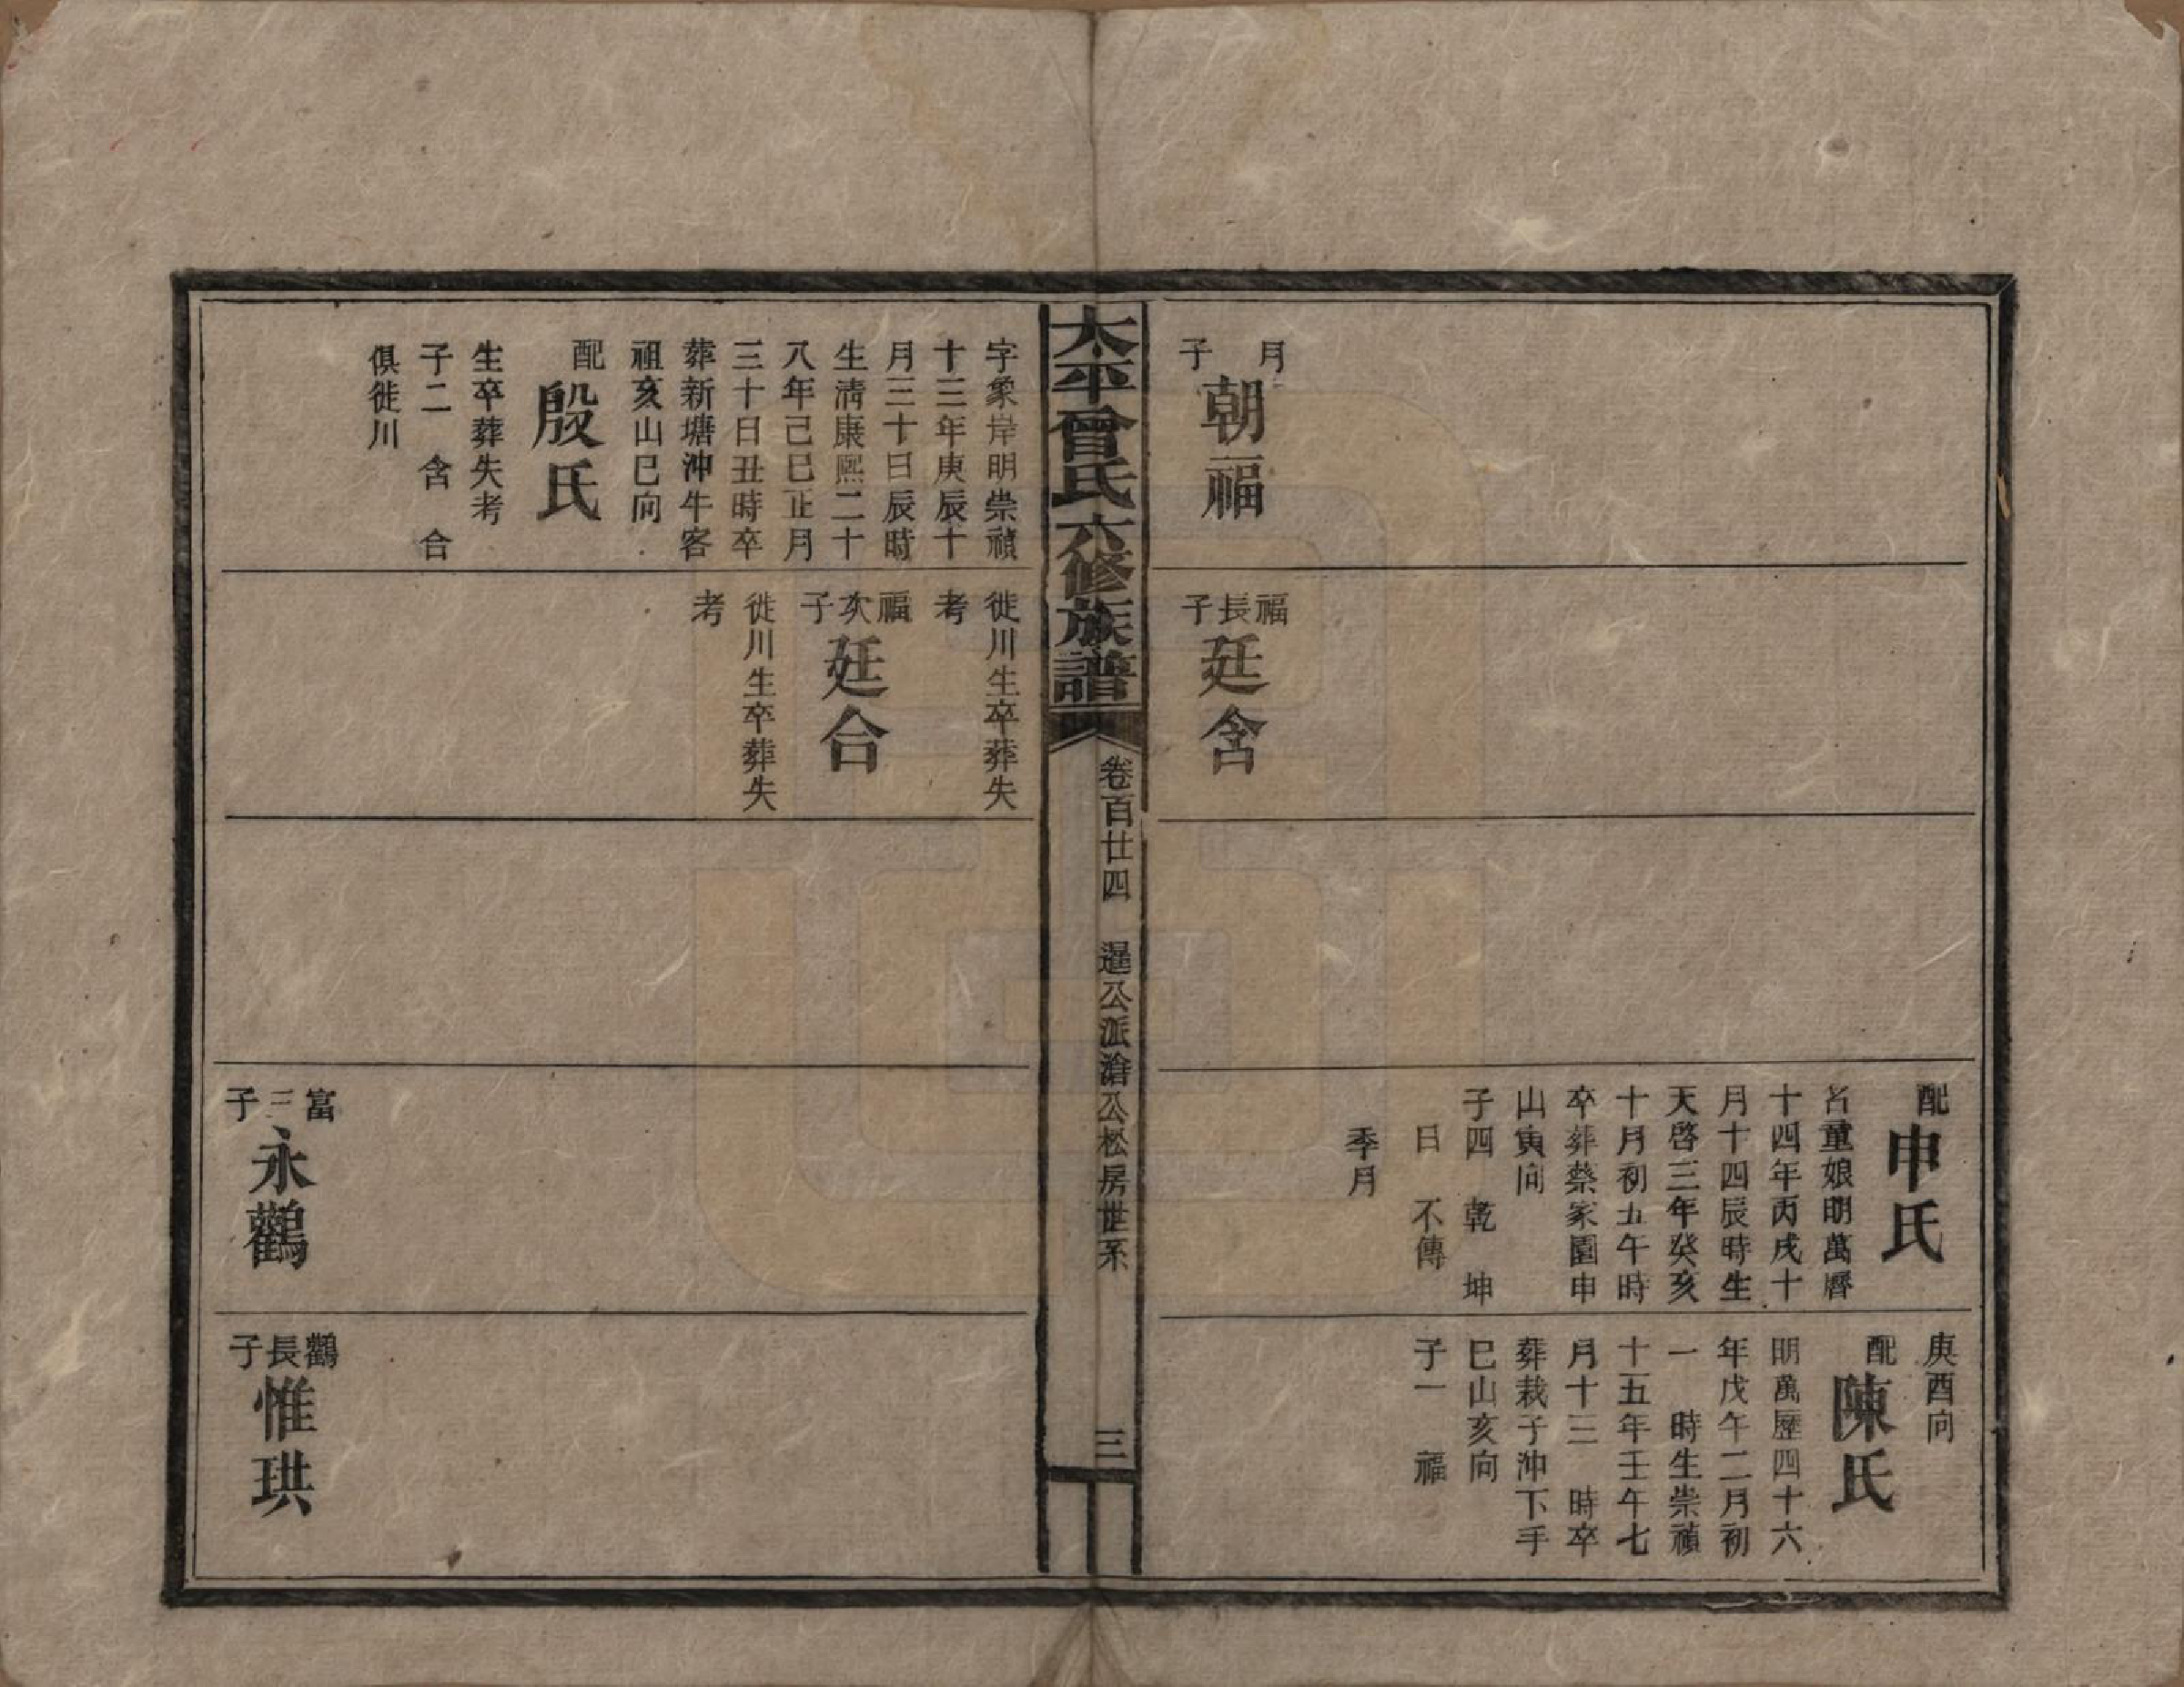 月子
朝福
福長子
廷含
配
申氏
名童娘明萬曆
十四年丙戌十
月十四辰時生
天啓三年癸亥
十月初五午時
卒葬蔡家園申
山寅向
子四　乾　坤
日　不傳
季月
庚酉向
配
陳氏
明萬歷四十六
年戊午二月初
一　時生崇禎
十五年壬午七
月十三　時卒
葬栽子沖下手
巳山亥向
子一　福
太平曾氏六修族譜
卷百廿四　暹公派滄公松房世系
三
字象岸明崇禎
十三年庚辰十
月三十日辰時
生淸康熙二十
八年己巳正月
三十日丑時卒
葬新塘沖牛客
祖亥山巳向
配
殷氏
生卒葬失考
子二　含　合
俱徙川
徙川生卒葬失
考
福次子
廷合
徙川生卒葬失
考
富三子
永鸛
鸛長子
惟珙